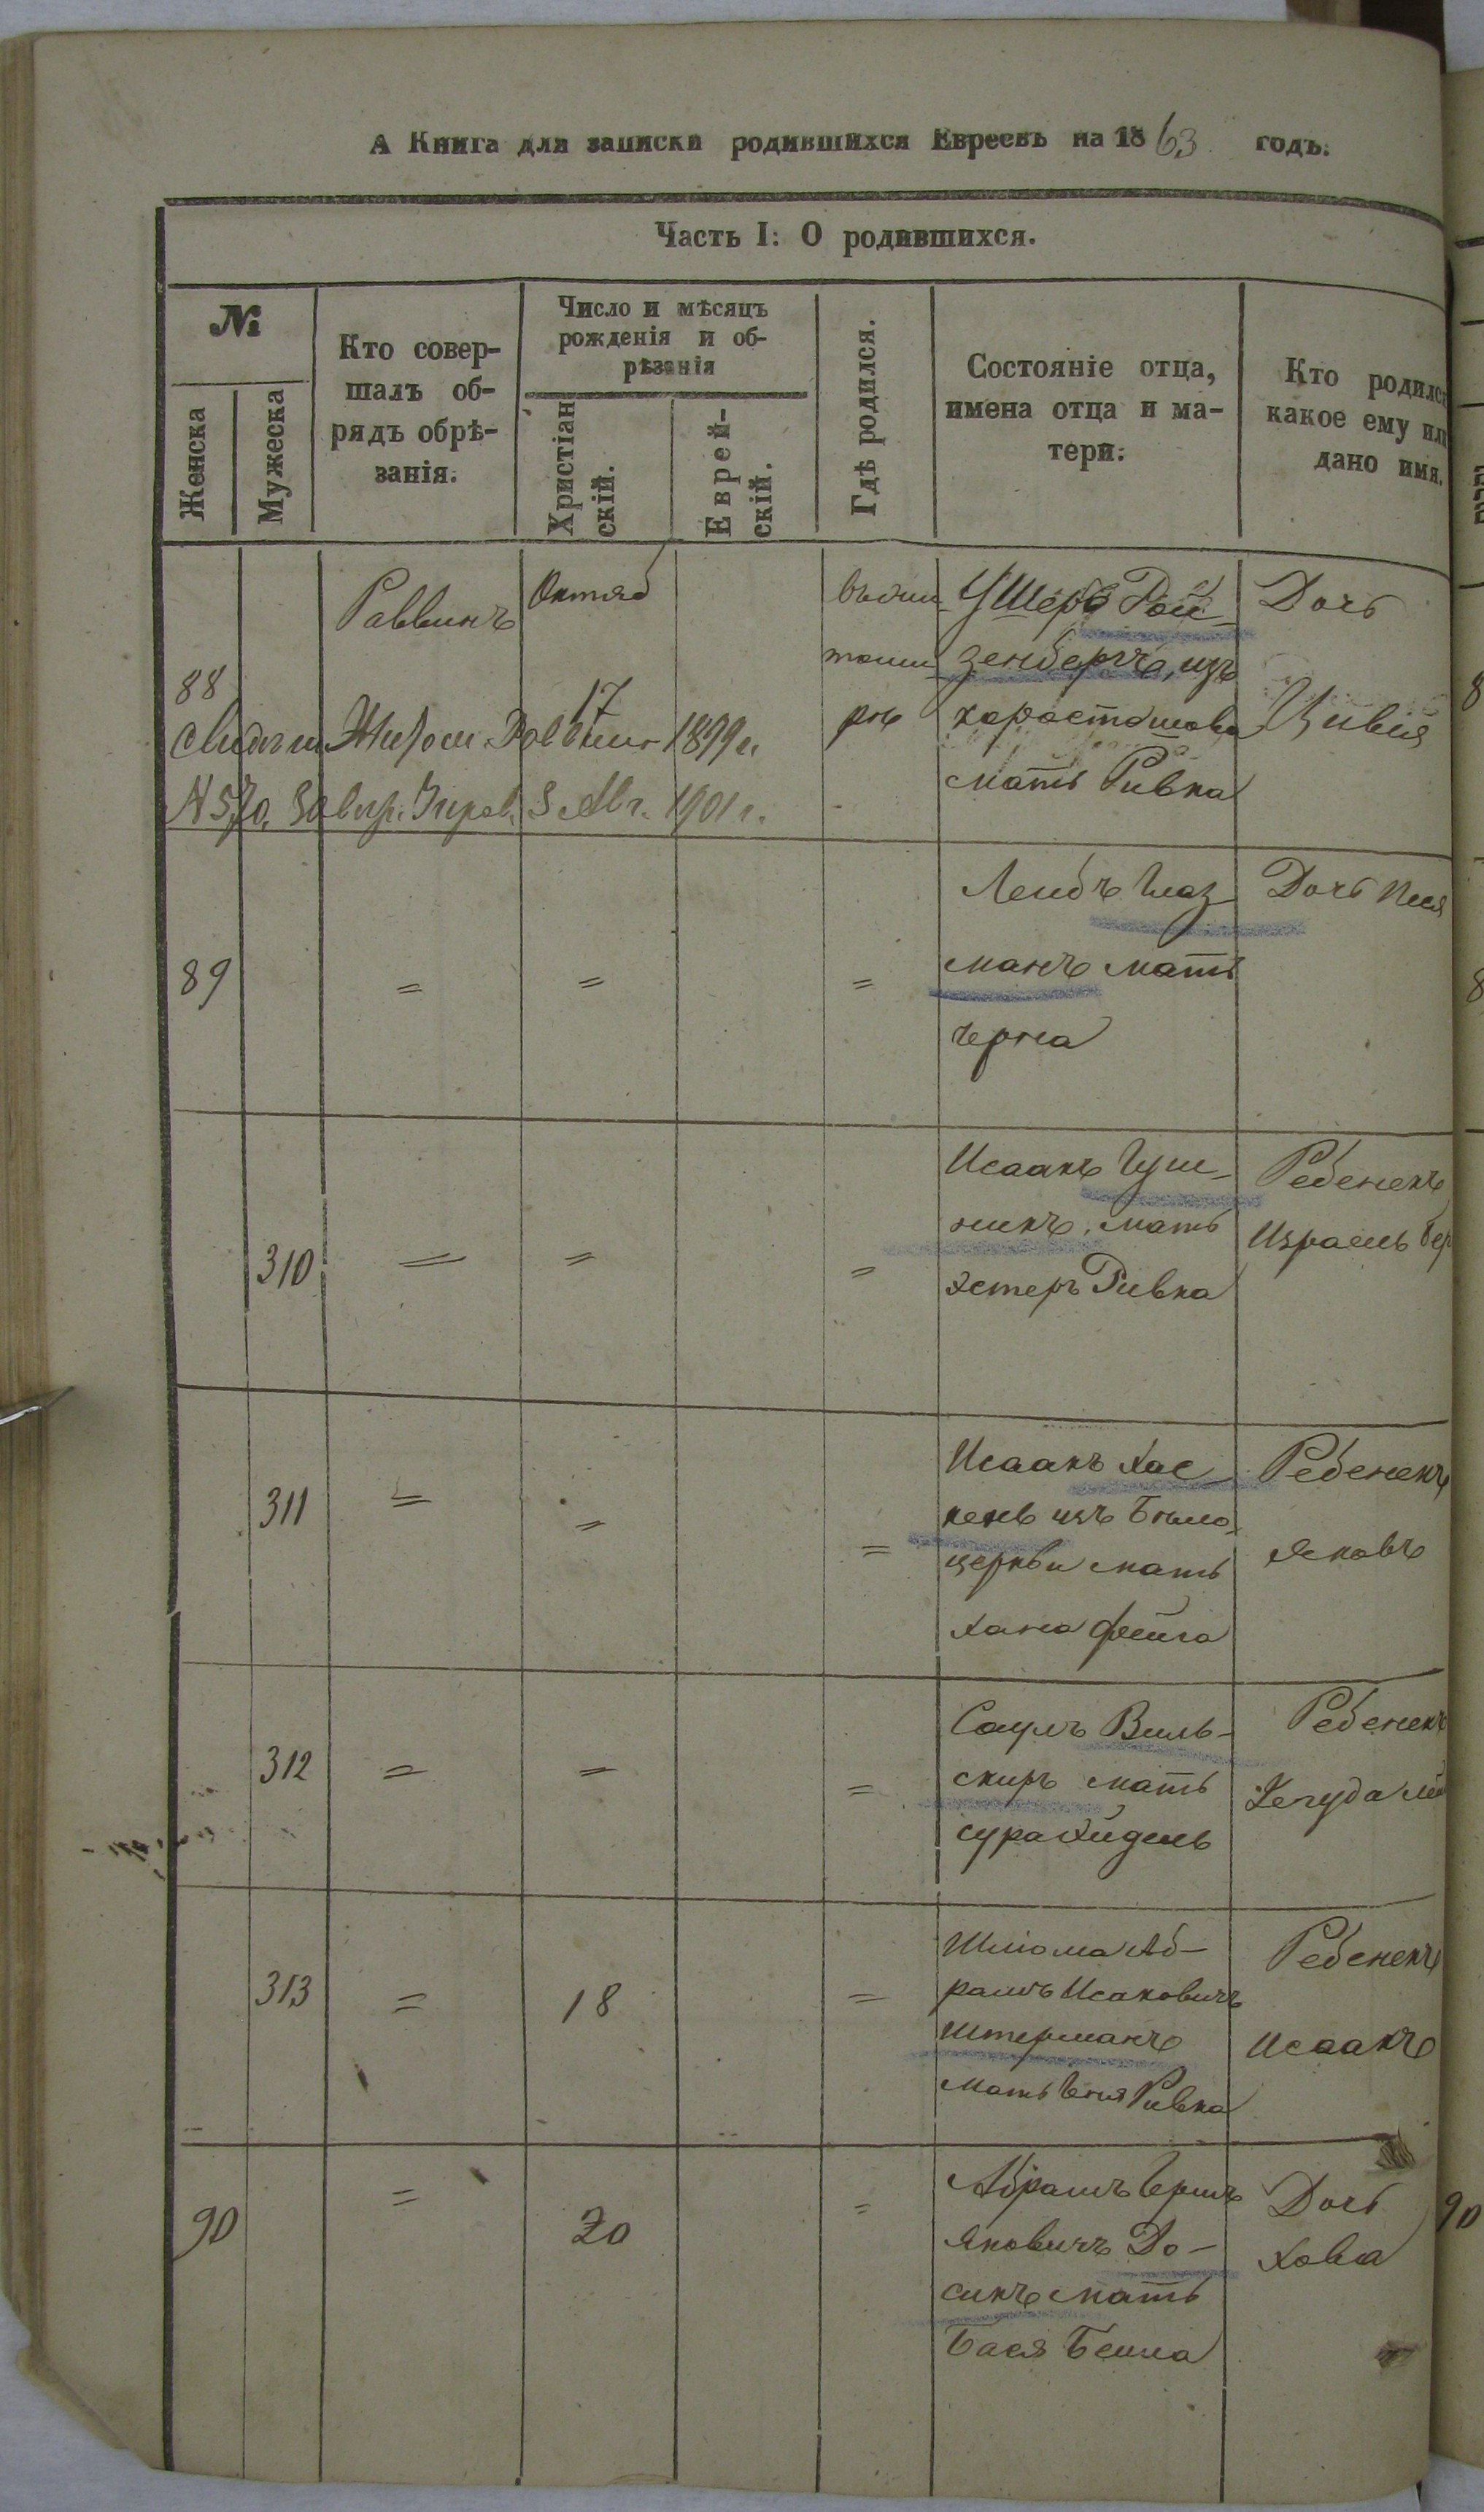 А Книга для записки родившихся Евреевъ на 1863 годъ.
Часть I: О родившихся.
№
Женска
Мужеска
Кто совер-
шалъ об-
рядъ обрѣ-
занія.
Число и мѣсяцъ
рожденія и об-
рѣзанія
Христіан
скій.
Еврей-
скій.
Гдѣ родился.
Состояніе отца,
имена отца и ма-
тери.
Кто родился
какое ему или
дано имя.
88
Раввинъ
Октяб
17
въ жи
томи
рѣ
Ушеръ Рой-
зенбергъ, изъ
харастошова
мать Ривка
Дочь
Цивія
1899 г.
N 570. 3 Авг. 1901 г.
89
=
=
=
Лейбъ Глаз
манъ мать
черна
Дочь Песя
310
=
=
=
Исаакъ Гуш-
никъ, мать
эстеръ Ривка
Ребенекъ
Израель Бер
311
=
=
=
Исаакъ Хас
кень изъ Бѣло
церкви мать
хана фейга
Ребенекъ
Яковъ
312
=
=
=
Саулъ Виль-
скиръ мать
сура Хидель
Ребенекъ
Iегуда лей
313
=
18
=
Шлиома Аб-
рамъ Исаковичъ
Штерманъ
мать Ривка
Ребенекъ
Исаакъ
90
=
20
=
Абрамъ Гершъ
Яковичъ До-
сикъ мать
Бася Бейла
Дочь
Хова
90